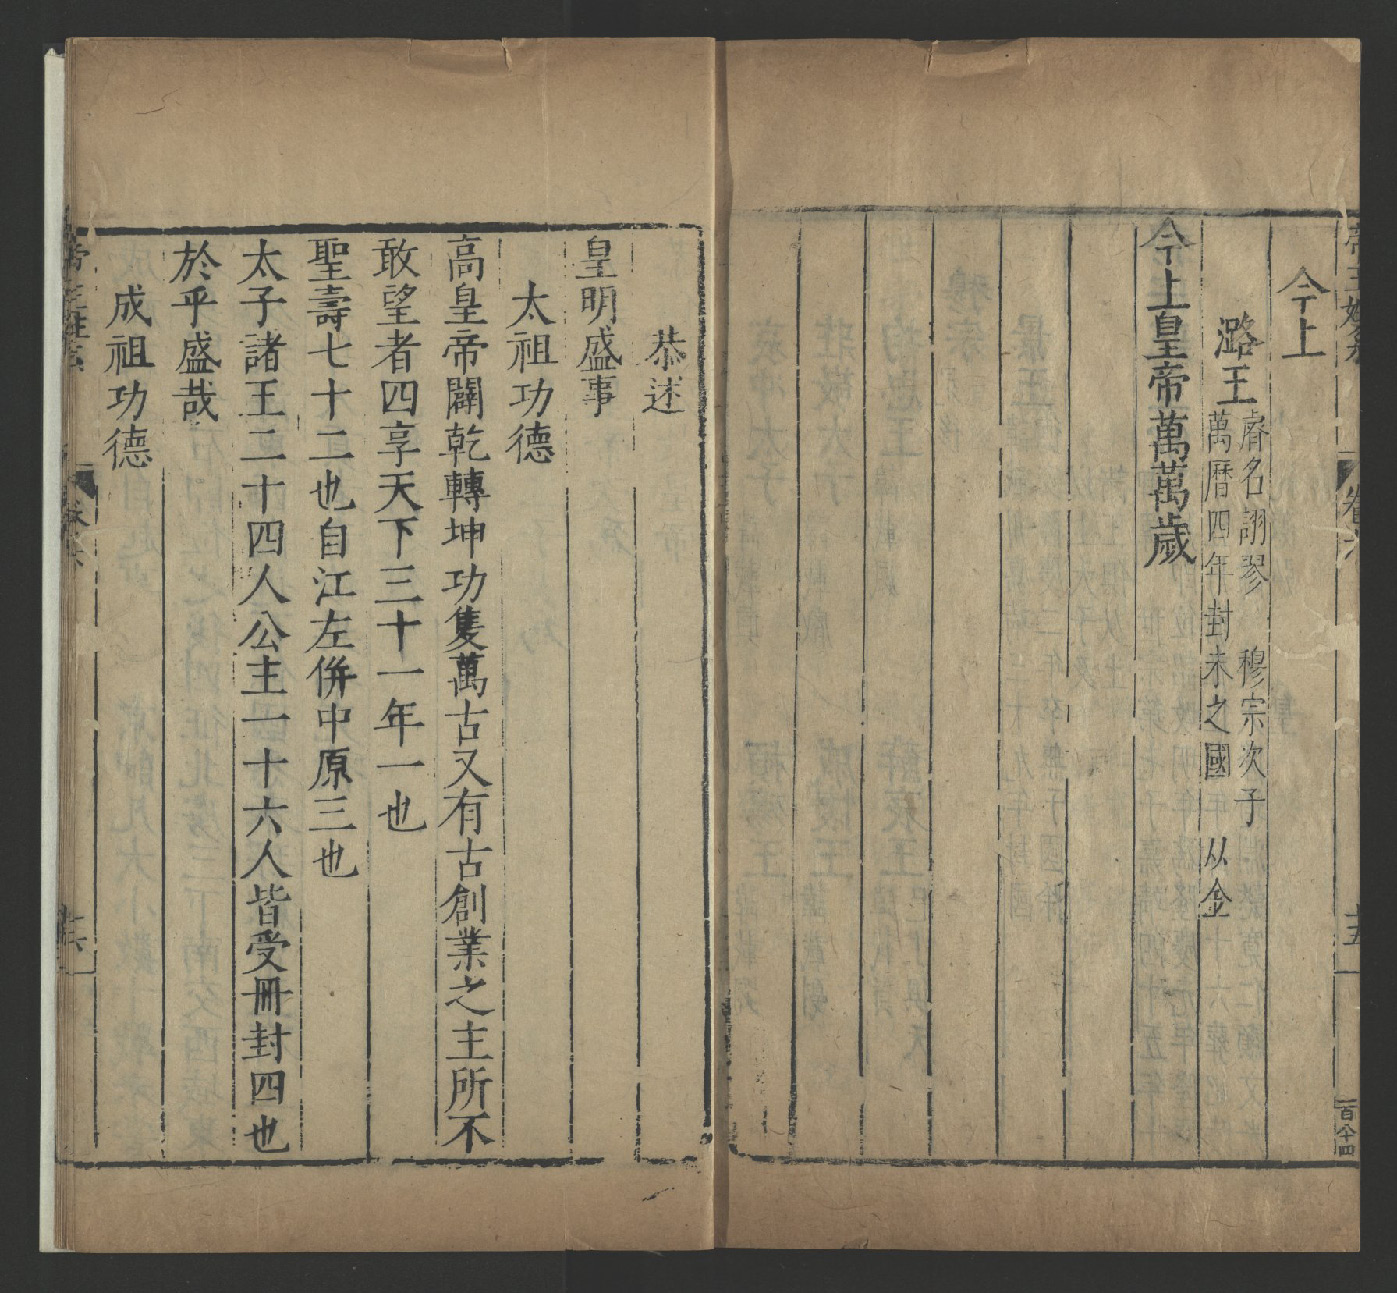 今上
潞王
睿名翊翏 穆宗次子
萬曆四年封未之國 从金
今上皇帝萬萬歲
恭述
皇明盛事
太祖功德
高皇帝闢乾轉坤功隻萬古又有古創業之主所不
敢望者四享天下三十一年一也
聖壽七十二也自江左併中原三也
太子諸王二十四人公主一十六人皆受冊封四也
於乎盛哉
成祖功德